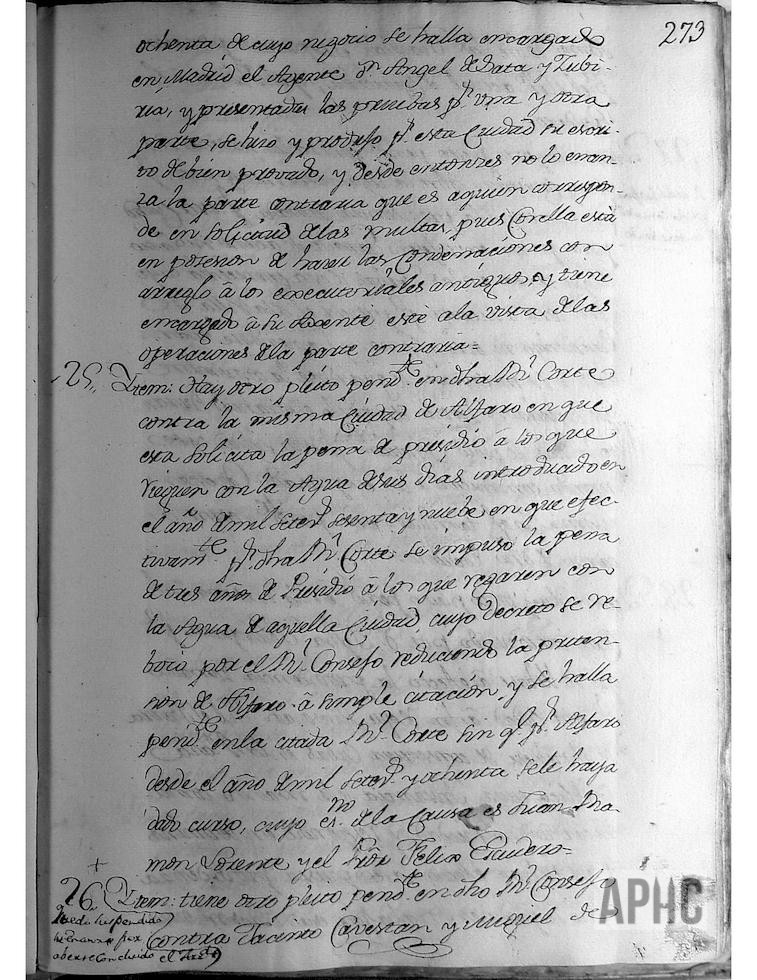 273
ochenta de cuyo negocio se halla encargado
en Madrid el Agente Dn. Angel de Bata y Zubi-
ria, y presentadas las pruebas pr. una y otra
parte, se hizo y produjo pr. esta Ciudad su escri-
to de bien provado, y desde entonces no lo avan-
za la parte contraria que es aquien correspon-
de en solicitud delas multas, pues Corella está
en posesion de hacer las Condenaciones con
arreglo â los executoriales antiguos, y tiene
encargado â su Agente esté ala vista delas
operaciones dela parte contraria=
25,, Item: Hay otro pleito pendte. en dha Rl. Corte
contra la misma Ciudad de Alfaro en que
esta solicita la pena de presidio â los que
rieguen con la Agua deseis dias introducido en
el año demil setecs. sesenta y nuebe en que efec-
tivamte. pr. dha Rl. Corte se impuso la pena
de tres años de Presidio â los que regaren con
la Agua de aquella Ciudad, cuyo Decreto se re-
boco por el Rl. Consejo reduciendo la preten-
sion de Alfaro â simple citación, y se halla
pendte. enla citada Rl. Corte sin q. pr. Alfaro
desde el año demil setecs. y ochenta sele haya
dado curso, cuyo esno. dela Causa es Juan Ra-
mon Lorente y el Pror. Felix Escudero=
+
26. Item: tiene otro pleito pendte. en dho Rl. Consejo
contra Jacinto Cavestan y Miguel de
Queda suspendido
abersse Concluido el
APHC